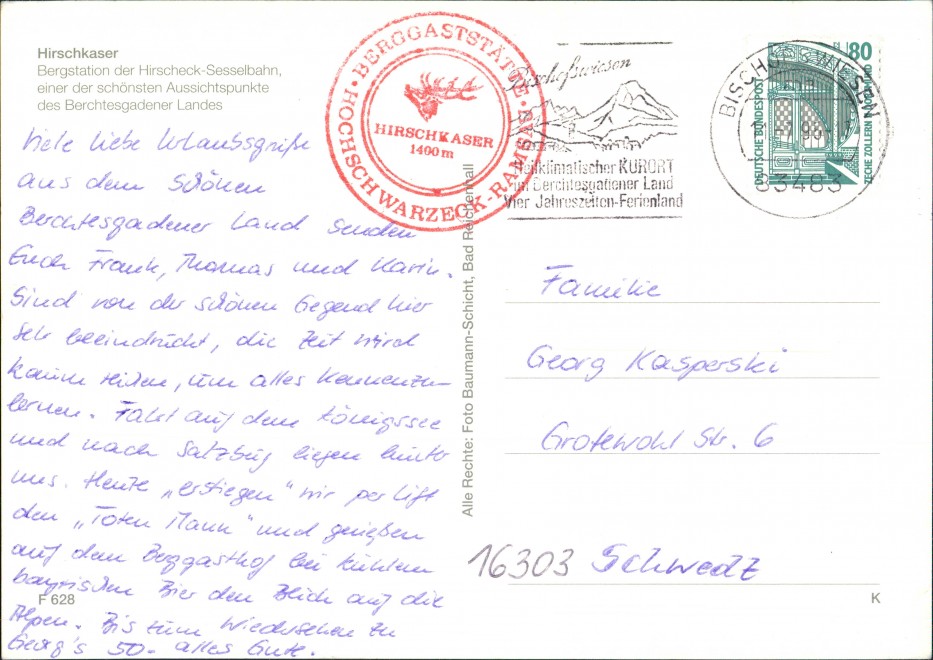 Hirschkaser
Bergstation der Hirscheck-Sesselbahn,
einer der schönsten Aussichtspunkte
des Berchtesgadener Landes
Viele liebe Urlaubsgrüße
aus dem schönen
Berchtesgadener Land senden
Euch Frank, Thomas und Karin.
Sind von der schönen Gegend hier
sehr beeindruckt, die Zeit wird
kaum reichen, um alles kennenzu-
lernen. Fahrt auf dem Königssee
und nach Salzburg liegen hinter
uns. Heute „erstiegen" wir per Lift
den „Toten Mann" und genießen
auf dem Berggasthof bei kühlem
bayrischen Bier den Blick auf die
Alpen. Bis zum Wiedersehen zu
Georg's 50. alles Gute.
F 628
BERGGASTSTÄTTE
HOCHSCHWARZECK-RAMSAU
HIRSCHKASER
1400 m
Alle Rechte: Foto Baumann-Schicht, Bad Reichenhall
Bischofswiesen
Heilklimatischer KURORT
im Berchtesgadener Land
Vier Jahreszeiten-Ferienland
BISCHOFSWIESEN
83483
80
DEUTSCHE BUNDESPOST
ZECHE ZOLLERN II DORTMUND
Familie
Georg Kasperski
Grotewohl Str. 6
16303 Schwedt
K